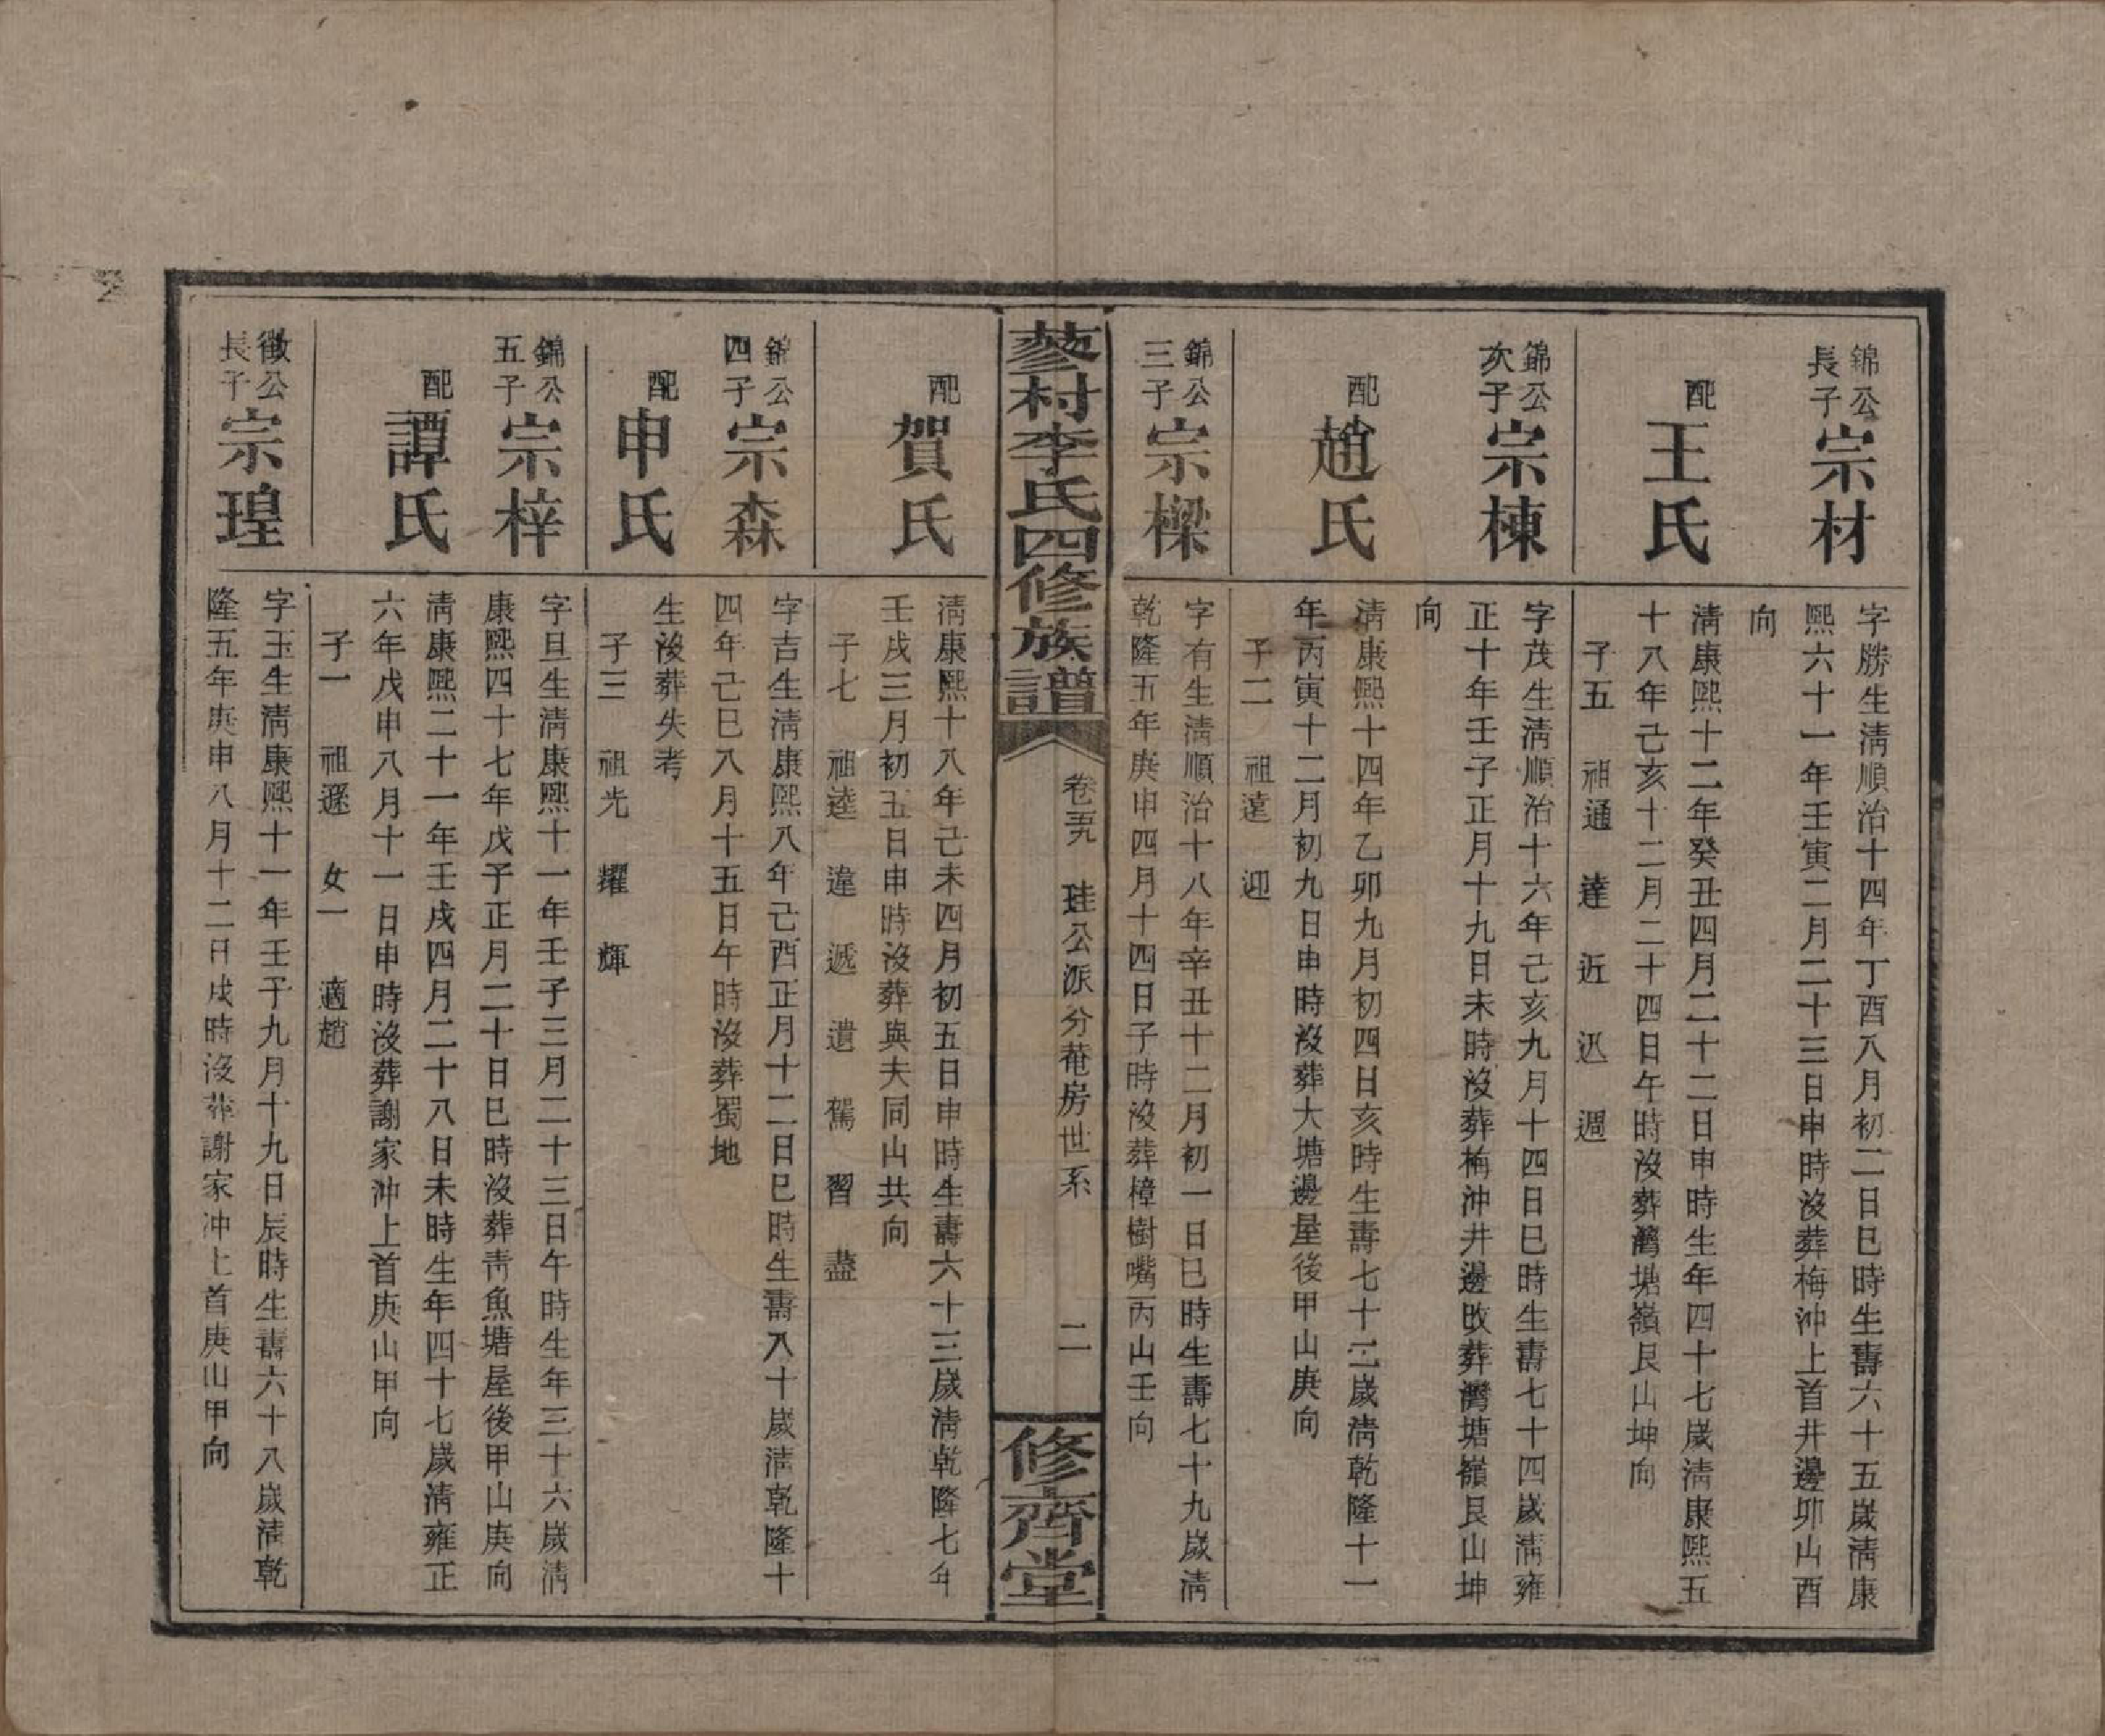 錦公
長子
宗材
字勝生淸順治十四年丁酉八月初二日巳時生壽六十五歲淸康
熙六十一年壬寅二月二十三日申時沒葬梅沖上首井邊卯山酉
向
配
王氏
淸康熙十二年癸丑四月二十二日申時生年四十七歲淸康熙五
十八年己亥十二月二十四日午時沒葬灣塘嶺艮山坤向
子五 祖通 達 近 迅 週
錦公
次子
宗棟
字茂生淸順治十六年己亥九月十四日巳時生壽七十四歲淸雍
正十年壬子正月十九日未時沒葬梅沖井邊改葬灣塘嶺艮山坤
向
配
趙氏
淸康熙十四年乙卯九月初四日亥時生壽七十二歲淸乾隆十一
年丙寅十二月初九日申時沒葬大塘邊屋後甲山庚向
子二 祖遠 迎
錦公
三子
宗樑
字有生淸順治十八年辛丑十二月初一日巳時生壽七十九歲淸
乾隆五年庚申四月十四日子時沒葬樟樹嘴丙山壬向
蓼村李氏四修族譜
卷五九 珪公派分菴房世系
二
修齊堂
配
賀氏
淸康熙十八年己未四月初五日申時生壽六十三歲淸乾隆七年
壬戌三月初五日申時沒葬與夫同山共向
子七 祖逵 違 遞 遺 駕 習 藎
錦公
四子
宗森
字吉生淸康熙八年己酉正月十二日巳時生壽八十歲淸乾隆十
四年己巳八月十五日午時沒葬蜀地
配
申氏
生沒葬失考
子三 祖光 耀 輝
錦公
五子
宗梓
字旦生淸康熙十一年壬子三月二十三日午時生年三十六歲淸
康熙四十七年戊子正月二十日巳時沒葬靑魚塘屋後甲山庚向
配
譚氏
淸康熙二十一年壬戌四月二十八日未時生年四十七歲淸雍正
六年戊申八月十一日申時沒葬謝家沖上首庚山甲向
子一 祖遜 女一 適趙
徵公
長子
宗瑝
字玉生淸康熙十一年壬子九月十九日辰時生壽六十八歲淸乾
隆五年庚申八月十二日戌時沒葬謝家沖上首庚山甲向